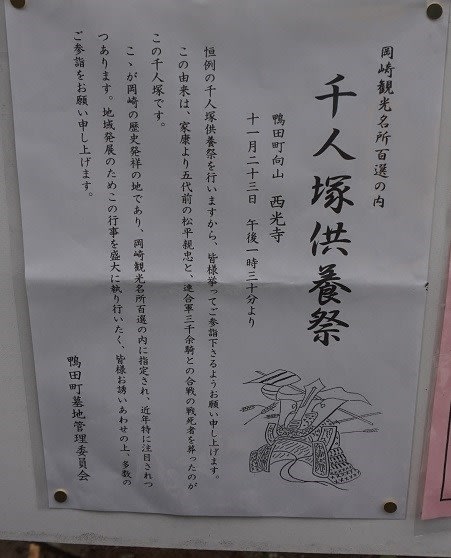 岡崎観光名所百選の内
千人塚供養祭
鴨田町向山 西光寺
十一月二十三日 午後一時三十分より
恒例の千人塚供養祭を行いますから、皆様挙ってご参詣下さるようお願い申し上げます。
この由来は、家康より五代前の松平親忠と、連合軍三千余騎との合戦の戦死者を葬ったのが
この千人塚です。
こゝが岡崎の歴史発祥の地であり、岡崎観光名所百選の内に指定され、近年特に注目されつ
つあります。地域発展のためこの行事を盛大に執り行いたく、皆様お誘いあわせの上、多数の
ご参詣をお願い申し上げます。
鴨田町墓地管理委員会